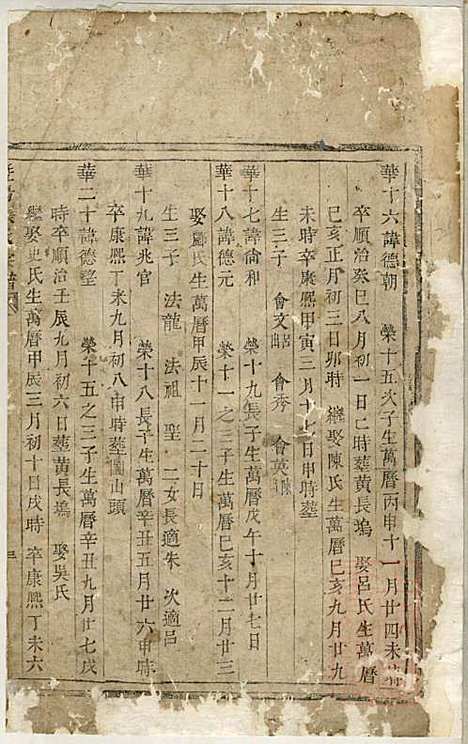 華十六諱德朝　榮十五次子生萬曆丙申十一月廿四未時
卒順治癸巳八月初一日乙時葬黃長塢　娶呂氏生萬曆
己亥正月初三日卯時　繼娶陳氏生萬曆己亥九月廿九
未時卒康熙甲寅三月十七日申時葬
生三子　會文　會秀　會英
華十七諱尙和　榮十九長子生萬曆戊午十月廿七日
華十八諱德元　榮十一之三子生萬曆己亥十二月廿三
娶鄭氏生萬曆甲辰十一月二十日
生三子　法龍　法祖　聖　二女長適朱　次適呂
華十九諱兆官　榮十八長子生萬曆辛丑五月廿六申時
卒康熙丁未九月初八申時葬山頭
華二十諱德　榮十五之三子生萬曆辛丑九月廿七戌
時卒順治壬辰九月初六日葬黃長塢　娶吳氏
繼娶史氏生萬曆甲辰三月初十日戌時　卒康熙丁未六
三